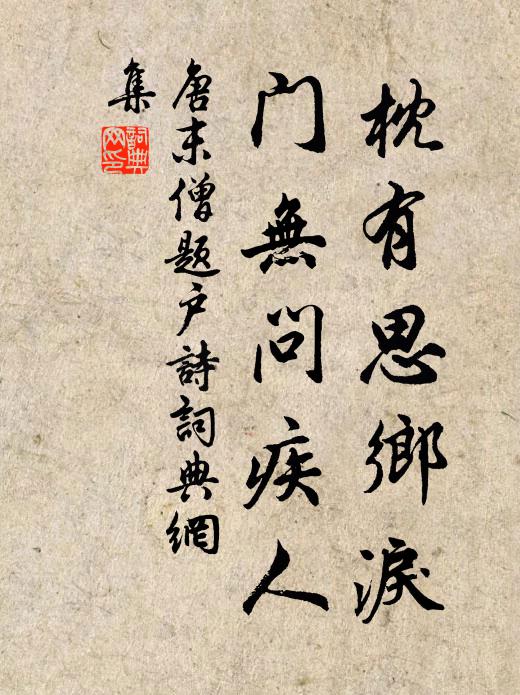 枕有思鄉淚
門無問疾人
唐末僧題户詩詞典網
集
詞典網印